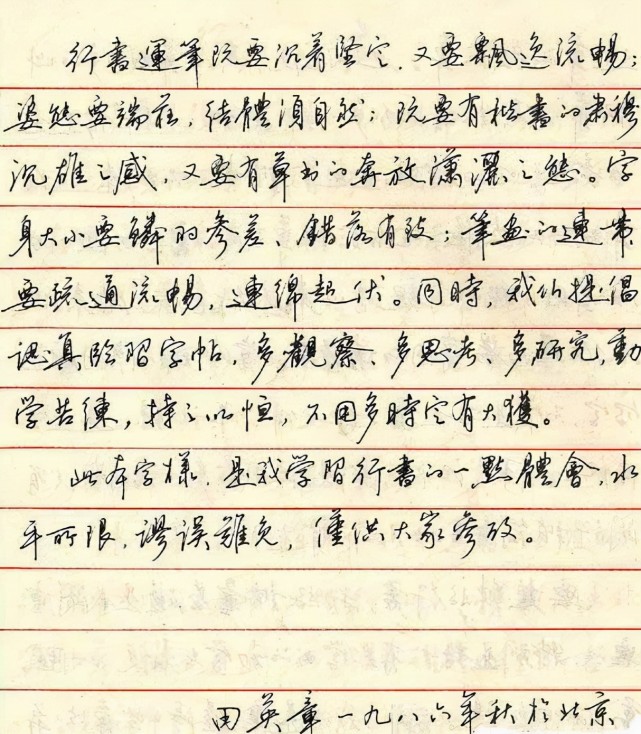 行書運筆既要沉着堅定，又要飄逸流暢；
姿態要端莊，結體須自然；既要有楷書的肅穆
沉雄之感，又要有草书的奔放瀟灑之態。字
身大小要鱗的參差、錯落有致；筆畫的連帶
要疏通流暢，連綿起伏。同時，我们提倡
認真臨習字帖，多觀察、多思考、多研究，勤
学苦練，持之以恒，不用多時定有大獲。
此本字樣，是我学習行書的一點體會，水
平所限，謬误難免，僅供大家參攷。
田英章一九八六年秋於北京